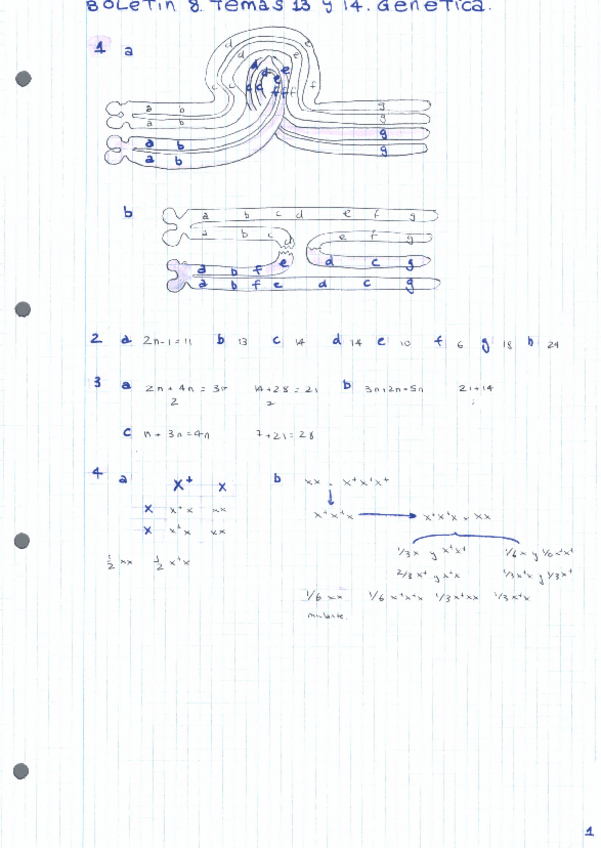 BOLETIN 8. TEMAS 13 y 14. Genética.
1 a
d e
d e
c c d e f
c c e
f f f
a b g
a b g
a b g
a b g
b
a b c d e f g
a b c d e f g
a b f e d c g
a b f e d c g
2 a 2n-1=11 b 13 c 14 d 14 e 10 f 6 g 18 h 24
3 a 2n + 4n = 3n 14+28 = 21 b 3n+2n=5n 21+14
2 2
c n + 3n = 4n 7+21=28
4 a X+ X b xx . x+x+x+
X x+x xx
X x+x xx
x+x+x x+x+x . xx
1/2 xx 1/2 x+x
1/3 x y x+x+
2/3 x+ y x+x
1/6 xx 1/6 x+x+x 1/3 x+xx 1/3 x+x
mutante.
1